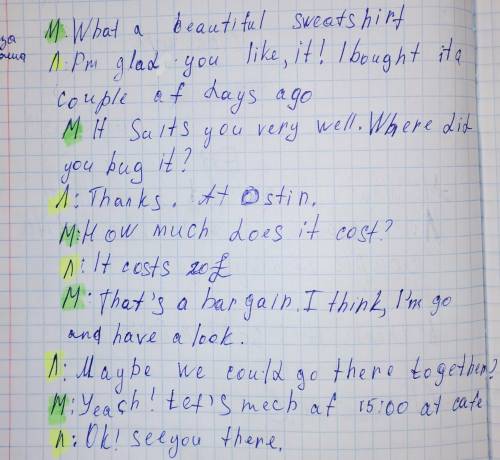 М: What a beautiful sweatshirt
за Л: I'm glad you like, it! I bought it a
couple of days ago
М: It Suits you very well. Where did
you bug it?
Л: Thanks. At Ostin.
М: How much does it cost?
Л: It costs 20£
М: That's a bargain. I think, I'm go
and have a look.
Л: Maybe we could go there together?
М: Yeach! Let's mech at 15:00 at cafe
Л: Ok! see you there.